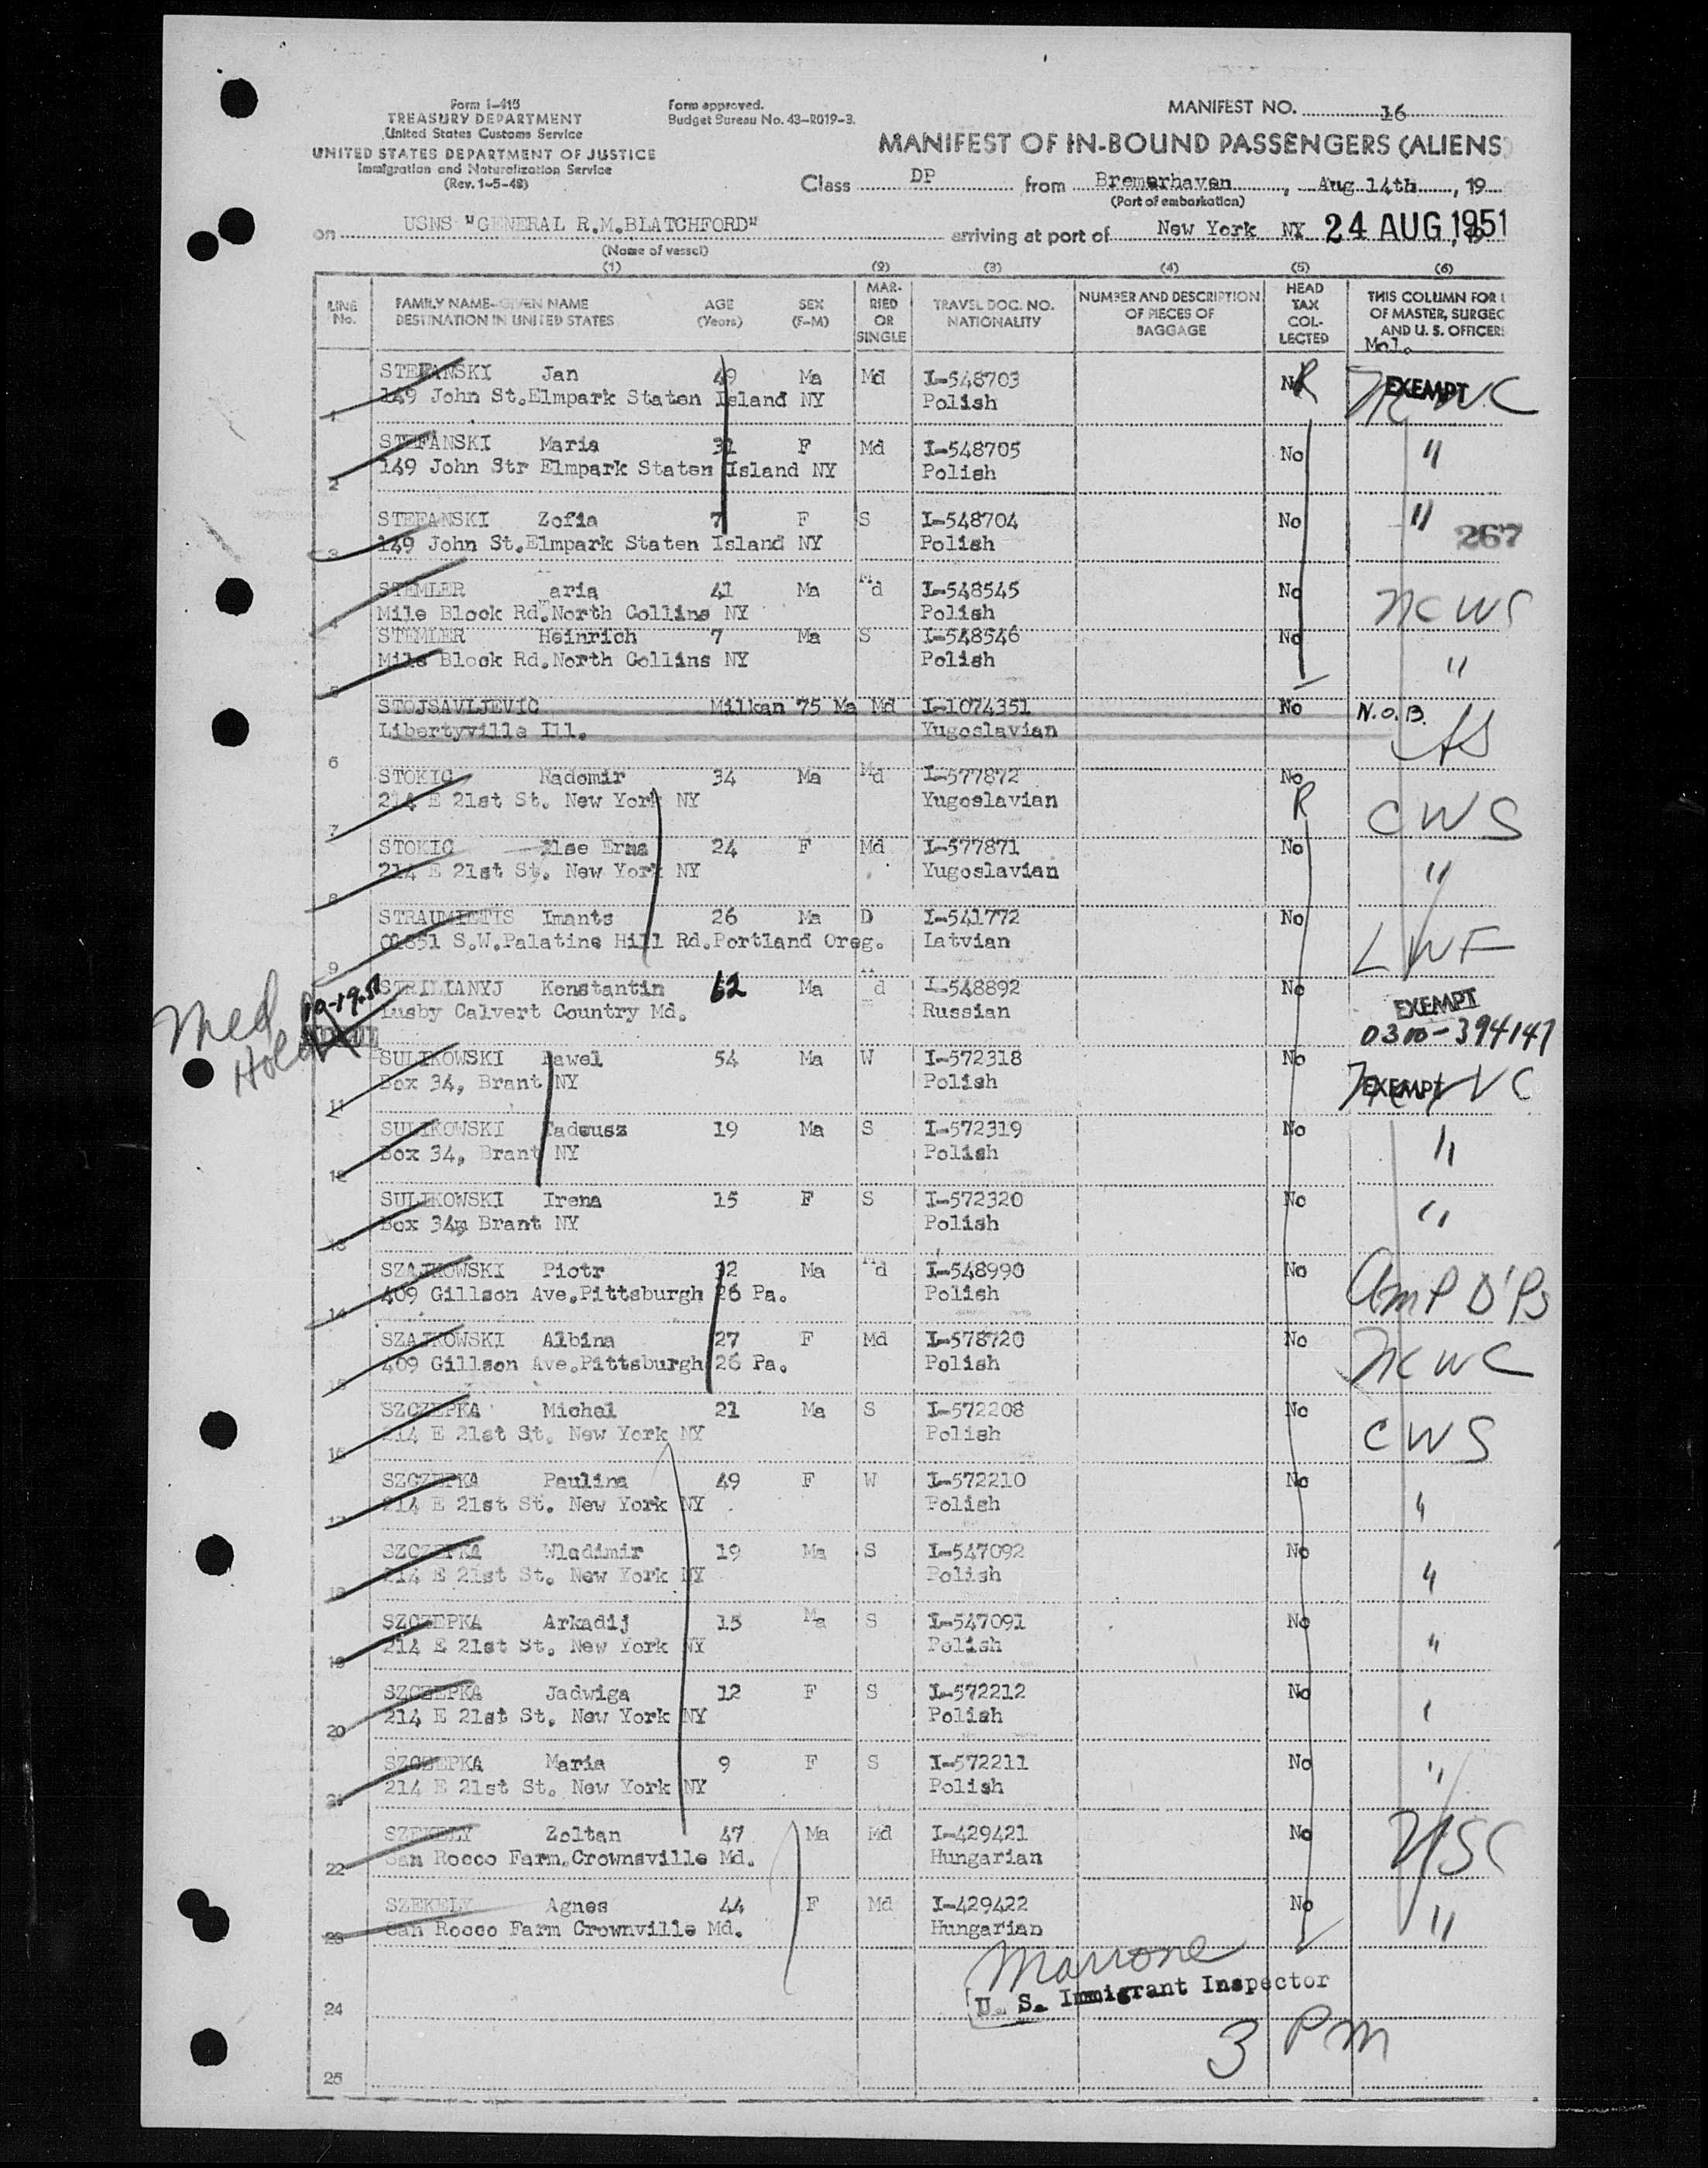 Form I-415
TREASURY DEPARTMENT
United States Customs Service
UNITED STATES DEPARTMENT OF JUSTICE
Immigration and Naturalization Service
(Rev. 1-5-48)
Form approved.
Budget Bureau No. 43-R019-3.
MANIFEST NO. 16
MANIFEST OF IN-BOUND PASSENGERS (ALIENS)
Class DP from Bremerhaven, Aug 14th, 19
(Port of embarkation)
on USNS "GENERAL R.M.BLATCHFORD" arriving at port of New York NY 24 AUG 1951
(Name of vessel)
(1) (2) (3) (4) (5) (6)
LINE No. FAMILY NAME—GIVEN NAME DESTINATION IN UNITED STATES AGE (Years) SEX (F-M) MARRIED OR SINGLE TRAVEL DOC. NO. NATIONALITY NUMBER AND DESCRIPTION OF PIECES OF BAGGAGE HEAD TAX COLLECTED THIS COLUMN FOR U OF MASTER, SURGEO AND U. S. OFFICERS
STEFANSKI Jan 49 Ma Md I-548703 No R EXEMPT NCWC
1 149 John St.Elmpark Staten Island NY Polish
STEFANSKI Maria 31 F Md I-548705 No "
2 149 John Str Elmpark Staten Island NY Polish
STEFANSKI Zofia 7 F S I-548704 No "
3 149 John St.Elmpark Staten Island NY Polish 267
STEMLER Maria 41 Ma Md I-548545 No NCWC
4 Mile Block Rd.North Collins NY Polish
STEMLER Heinrich 7 Ma S I-548546 No
5 Mile Block Rd.North Collins NY Polish "
STOJSAVLJEVIC Milkan 75 Ma Md I-1074351 No N.O.B.
6 Libertyville Ill. Yugoslavian
STOKIC Radomir 34 Ma Md I-577872 No
7 214 E 21st St. New York NY Yugoslavian R CWS
STOKIC Ilse Erna 24 F Md I-577871 No
8 214 E 21st St. New York NY Yugoslavian "
STRAUMIETIS Imants 26 Ma D I-541772 No
9 01851 S.W.Palatine Hill Rd.Portland Oreg. Latvian LWF
STRILIANYJ Konstantin 62 Ma Md I-548892 No EXEMPT
Lusby Calvert Country Md. Russian 0300-394147
Med Hold
SULIKOWSKI Pawel 54 Ma W I-572318 No
11 Box 34, Brant NY Polish EXEMPT NCWC
SULIKOWSKI Tadeusz 19 Ma S I-572319 No
12 Box 34, Brant NY Polish "
SULIKOWSKI Irena 15 F S I-572320 No
13 Box 34m Brant NY Polish "
SZAJKOWSKI Piotr 32 Ma Md I-548990 No
14 409 Gillson Ave.Pittsburgh 26 Pa. Polish Am P D'Ps
SZAJKOWSKI Albina 27 F Md I-578720 No
15 409 Gillson Ave.Pittsburgh 26 Pa. Polish NCWC
SZCZEPKA Michal 21 Ma S I-572208 No
16 214 E 21st St. New York NY Polish CWS
SZCZEPKA Paulina 49 F W I-572210 No
17 214 E 21st St. New York NY Polish "
SZCZEPKA Wladimir 19 Ma S I-547092 No
18 214 E 21st St. New York NY Polish "
SZCZEPKA Arkadij 15 Ma S I-547091 No
19 214 E 21st St. New York NY Polish "
SZCZEPKA Jadwiga 12 F S I-572212 No
20 214 E 21st St. New York NY Polish "
SZCZEPKA Maria 9 F S I-572211 No
21 214 E 21st St. New York NY Polish "
SZEKELY Zoltan 47 Ma Md I-429421 No
22 San Rocco Farm.Crownsville Md. Hungarian USC
SZEKELY Agnes 44 F Md I-429422 No
23 San Rocco Farm Crownville Md. Hungarian "
Marrone
U. S. Immigrant Inspector
24
3 PM
25